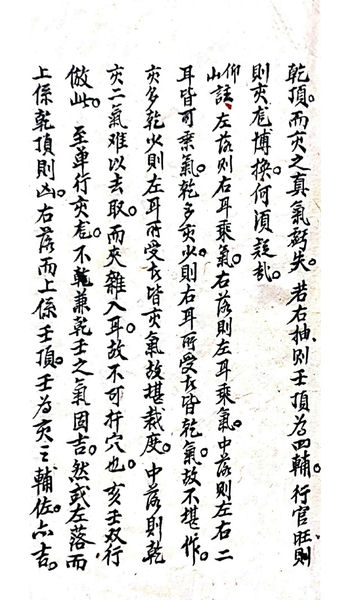 乾頂。而亥之真氣虧失。若右抽。則壬頂為四輔。行官旺。則
則亥龙博換。何須疑哉。
仰山註 左落則右耳乘氣。右落則左耳乘氣。中落則左右二
耳皆可乘氣。乾多亥少。則右耳所受者皆乾氣。故不堪作。
亥多乾少則左耳所受者皆亥氣故堪裁度。中落則乾
亥二氣难以去取。而夾雜入耳。故不可扦穴也。亥壬双行
倣此。 至单行亥龙。不乾兼乾壬之氣固吉。然或左落而
上係乾頂則凶。右落而上係壬頂。壬為亥之輔佐。亦吉。